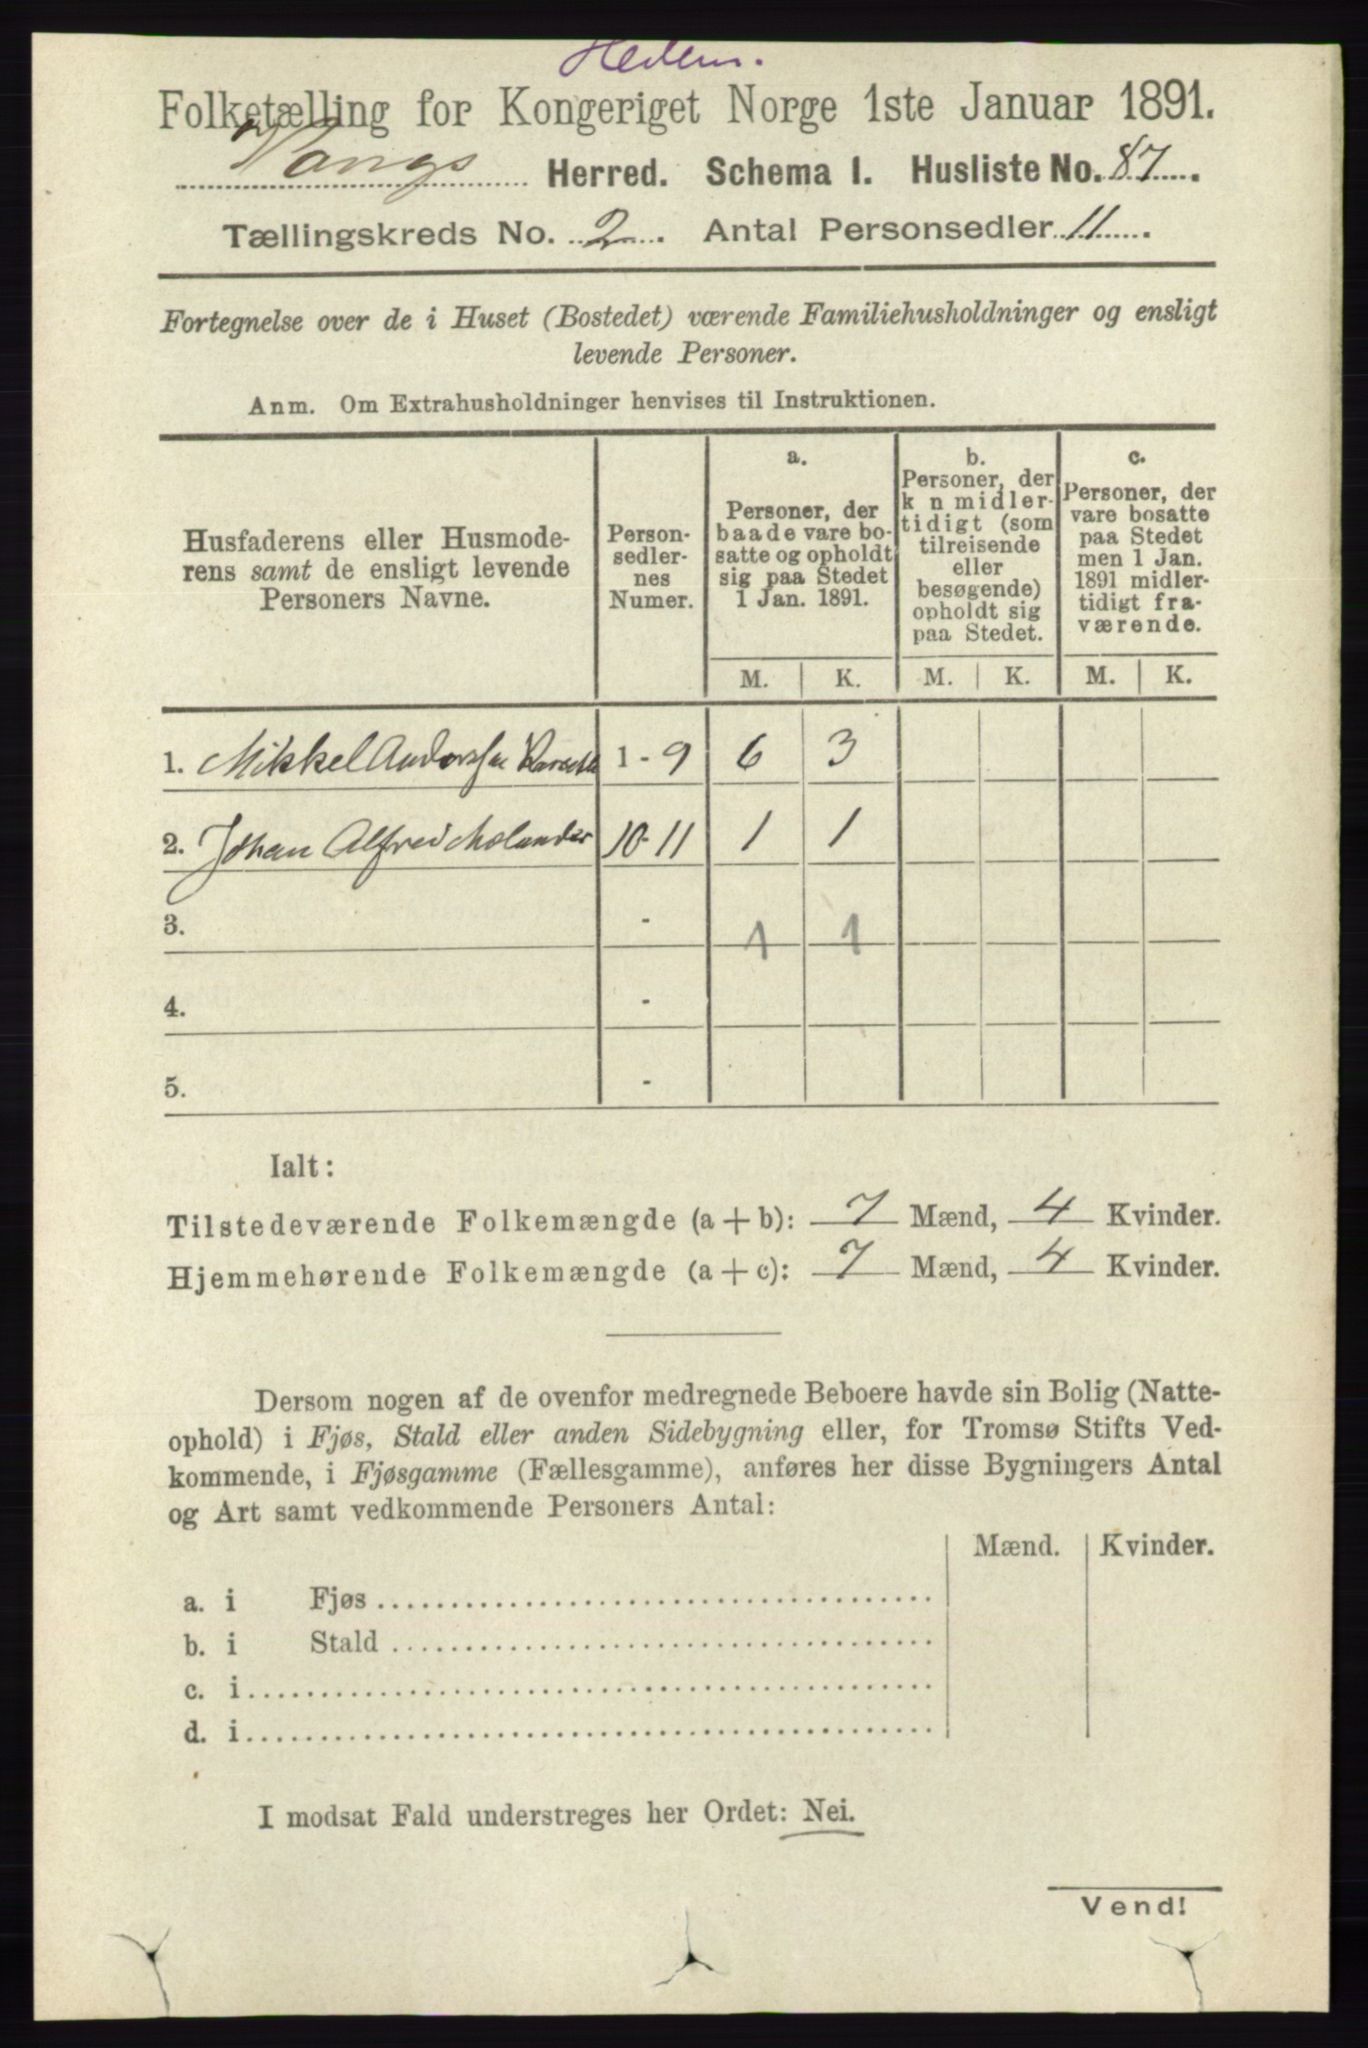 Hedem.
Folketælling for Kongeriget Norge 1ste Januar 1891.
Vangs Herred. Schema I. Husliste No. 87.
Tællingskreds No. 2. Antal Personsedler 11.
Fortegnelse over de i Huset (Bostedet) værende Familiehusholdninger og ensligt
levende Personer.
Anm. Om Extrahusholdninger henvises til Instruktionen.
Husfaderens eller Husmode-
rens samt de ensligt levende
Personers Navne.
Person-
sedler-
nes
Numer.
a.
Personer, der
baade vare bo-
satte og opholdt
sig paa Stedet
1 Jan. 1891.
b.
Personer, der
k n midler-
tidigt (som
tilreisende
eller
besøgende)
opholdt sig
paa Stedet.
c.
Personer, der
vare bosatte
paa Stedet
men 1 Jan.
1891 midler-
tidigt fra-
værende.
M. K. M. K. M. K.
1. Mikkel Anderssen 1 - 9 6 3
2. Johan Alfred Molander 10-11 1 1
3. - 1 1
4. -
5. -
Ialt:
Tilstedeværende Folkemængde (a + b): 7 Mænd, 4 Kvinder.
Hjemmehørende Folkemængde (a + c): 7 Mænd, 4 Kvinder.
Dersom nogen af de ovenfor medregnede Beboere havde sin Bolig (Natte-
ophold) i Fjøs, Stald eller anden Sidebygning eller, for Tromsø Stifts Ved-
kommende, i Fjøsgamme (Fællesgamme), anføres her disse Bygningers Antal
og Art samt vedkommende Personers Antal:
Mænd. Kvinder.
a. i Fjøs
b. i Stald
c. i
d. i
I modsat Fald understreges her Ordet: Nei.
Vend!